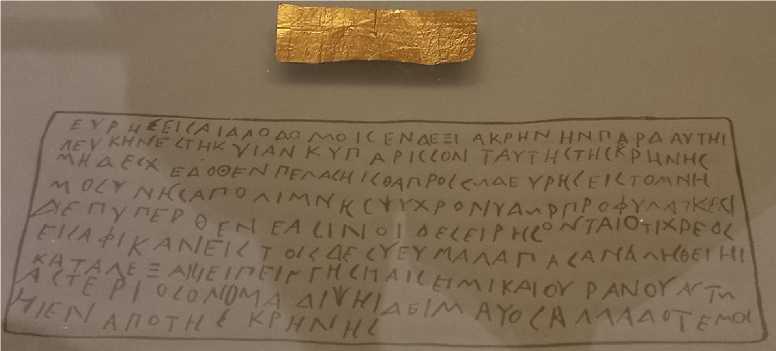 ΕΥΡΗΣΕΙΣΑΙΔΑΟΔΟΜΟΙΣΕΝΔΕΞΙΑΚΡΗΝΗΝΠΑΡΔΑΥΤΗΙ
ΛΕΥΚΗΝΕΣΤΗΚΥΙΑΝΚΥΠΑΡΙΣΣΟΝΤΑΥΤΗΣΤΗΣΚΡΗΝΗΣ
ΜΗΔΕΣΧΕΔΟΘΕΝΠΕΛΑΣΗΙΣΘΑΠΡΟΣΣΩΔΕΥΡΗΣΕΙΣΤΟΜΝΗ
ΜΟΣΥΝΗΣΑΠΟΛΙΜΝΗΣΨΥΧΡΟΝΥΔΩΡΠΡΟΦΥΛΑΚΕΣ
ΔΕΠΥΠΕΡΘΕΝΕΑΣΙΝΟΙΔΕΣΕΙΡΗΣΟΝΤΑΙΟΤΙΧΡΕΟΣ
ΕΙΣΑΦΙΚΑΝΕΙΣΤΟΙΣΔΕΣΥΕΥΜΑΛΑΠΑΣΑΝΑΛΗΘΕΙΗΙ
ΚΑΤΑΛΕΞΑΙΕΙΠΕΙΝΓΗΣΠΑΙΣΕΙΜΙΚΑΙΟΥΡΑΝΟΥΑΣΤ
ΑΣΤΕΡΙΟΣΟΝΟΜΑΔΙΨΗΙΔΕΙΜΑΥΟΣΑΛΛΑΔΟΤΕΜΟΙ
ΠΙΕΝΑΠΟΤΗΣΚΡΗΝΗΣ